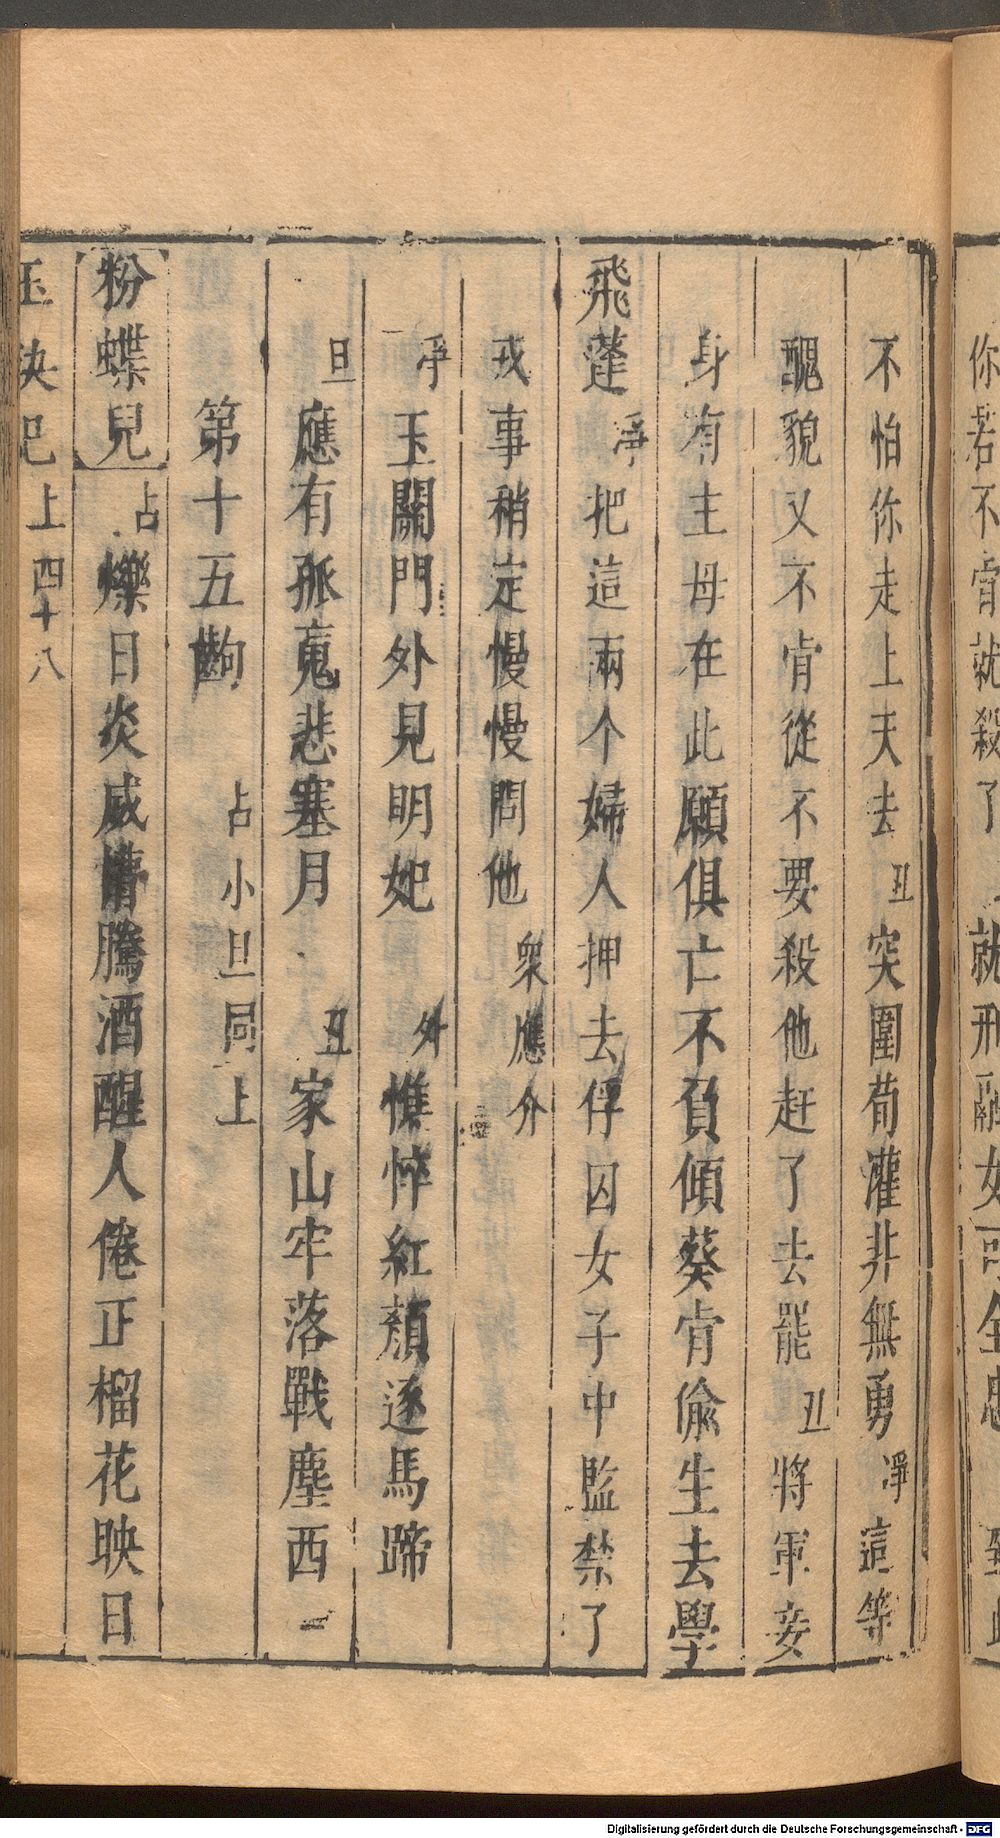 你若不肯就殺了 就刑
不怕你走上天去 丑 突圍荀灌非無勇 凈 這等
醜貌又不肯從不要殺他赶了去罷 丑 將軍妾
身有主母在此願俱亡不負傾葵肯偷生去學
飛蓬 凈 把這兩个婦人押去俘囚女子中監禁了
戎事稍定慢慢問他 衆應介
凈 玉關門外見明妃 外 憔悴紅顏逐馬蹄
旦 應有孤嵬悲塞月 丑 家山牢落戰塵西
第十五齣 占小旦同上
粉蝶兒 占 爍日炎威懵騰酒醒人倦正榴花映日
玉玦記上 四十八
Digitalisierung gefördert durch die Deutsche Forschungsgemeinschaft - DFG